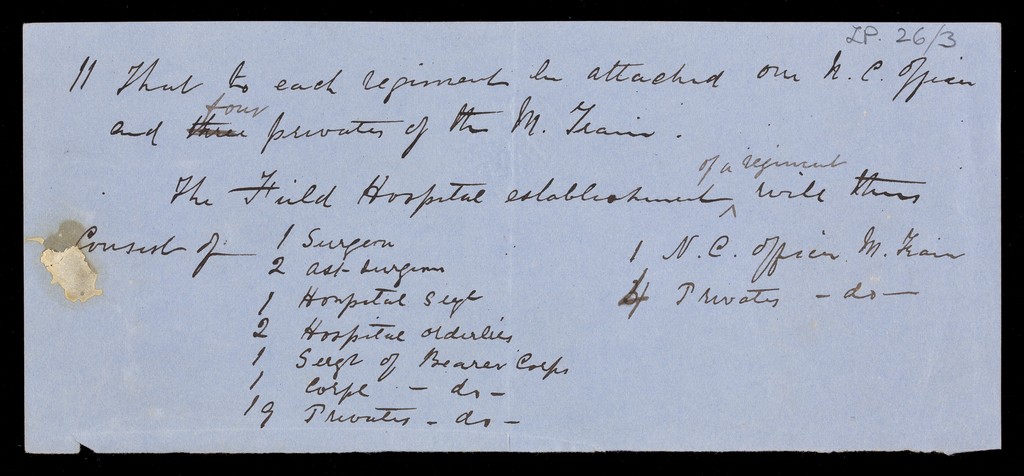 ZP. 26/3
11 That to each regiment be attached one N. C. officer
four
and three privates of the M. Train.
of a regiment
The Field Hospital establishment ^ will thus
Consist of 1 Surgeon
2 asst Surgeons
1 Hospital Sergt
2 Hospital orderlies
1 Sergt of Bearer Corps
1 Corpl - do -
19 Privates - do -
1 N. C. officer M. Train
4 Privates - do -